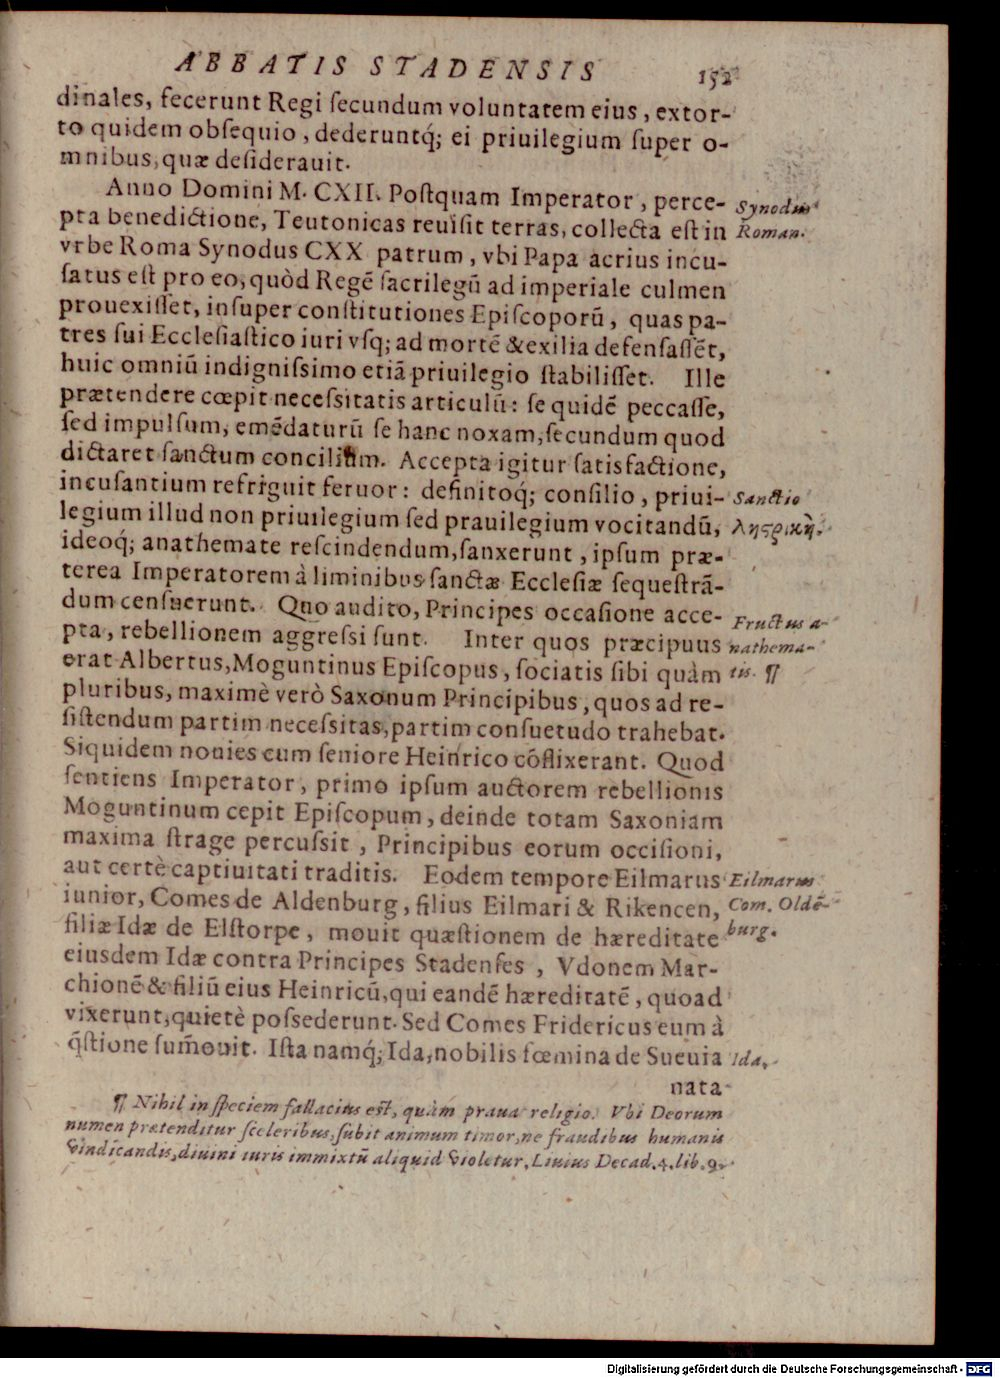 ABBATIS STADENSIS 152
dinales, fecerunt Regi ſecundum voluntatem eius, extor-
to quidem obſequio, dederuntq́; ei priuilegium ſuper o-
mnibus, quæ deſiderauit.
Anno Domini M. CXII. Poſtquam Imperator, perce-
pta benedictione, Teutonicas reuiſit terras, collecta eſt in
vrbe Roma Synodus CXX patrum, vbi Papa acrius incu-
ſatus eſt pro eo, quòd Regē ſacrilegū ad imperiale culmen
prouexiſſet, inſuper conſtitutiones Epiſcoporū, quas pa-
tres ſui Eccleſiaſtico iuri vſq; ad mortē & exilia defenſaſſēt,
huic omniū indigniſsimo etiā priuilegio ſtabiliſſet. Ille
prætendere cœpit neceſsitatis articulū: ſe quidē peccaſſe,
ſed impulſum, emēdaturū ſe hanc noxam, ſecundum quod
dictaret ſanctum concilium. Accepta igitur ſatisfactione,
incuſantium refriguit feruor: definitoq́; conſilio, priui-
legium illud non priuilegium ſed prauilegium vocitandū,
ideoq́; anathemate reſcindendum, ſanxerunt, ipſum præ-
terea Imperatorem à liminibus ſanctæ Eccleſiæ ſequeſtrā-
dum cenſuerunt. Quo audito, Principes occaſione acce-
pta, rebellionem aggreſsi ſunt. Inter quos præcipuus
erat Albertus, Moguntinus Epiſcopus, ſociatis ſibi quàm
pluribus, maximè verò Saxonum Principibus, quos ad re-
ſiſtendum partim neceſsitas, partim conſuetudo trahebat.
Siquidem nouies cum ſeniore Heinrico cōflixerant. Quod
ſentiens Imperator, primo ipſum auctorem rebellionis
Moguntinum cepit Epiſcopum, deinde totam Saxoniam
maxima ſtrage percuſsit, Principibus eorum occiſioni,
aut certè captiuitati traditis. Eodem tempore Eilmarus
iunior, Comes de Aldenburg, filius Eilmari & Rikencen,
filiæ Idæ de Elſtorpe, mouit quæſtionem de hæreditate
eiusdem Idæ contra Principes Stadenſes, Vdonem Mar-
chionē & filiū eius Heinricū, qui eandē hæreditatē, quoad
vixerunt, quietè poſsederunt. Sed Comes Fridericus eum à
q̄ſtione ſum̄ouit. Iſta namq́; Ida, nobilis fœmina de Sueuia
nata
Synodus
Roman.
Sanctio
λῃςρικὴ.
Fructus a-
nathema-
tis. ¶
Eilmarus
Com. Oldē-
burg.
Ida.
¶ Nihil in ſpeciem fallacius eſt, quàm praua religio. Vbi Deorum
numen prætenditur ſceleribus, ſubit animum timor, ne fraudibus humanis
vindicandis, diuini iuris immixtū aliquid violetur, Liuius Decad. 4. lib. 9.
Digitalisierung gefördert durch die Deutsche Forschungsgemeinschaft - DFG